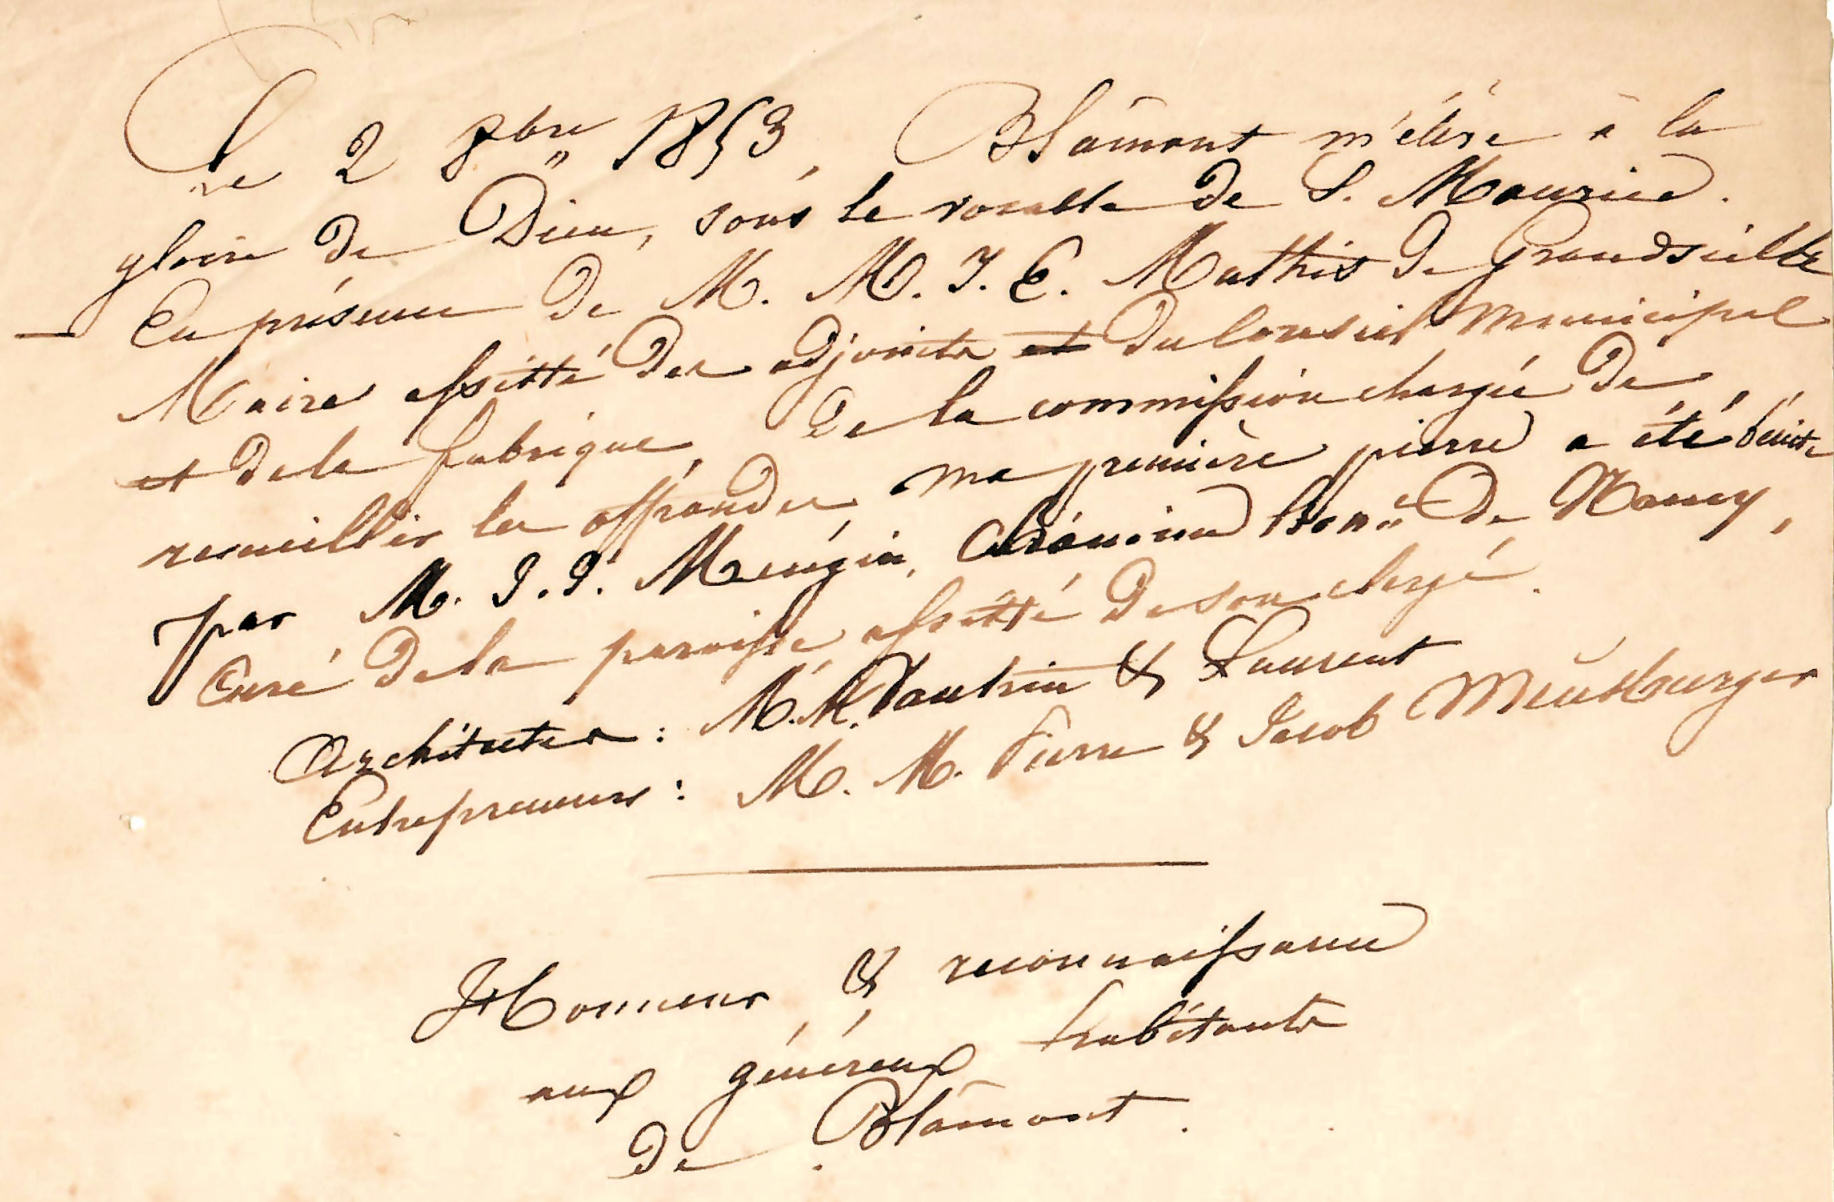 Le 2 8bre 1853, Blâmont m'élève à la
gloire de Dieu, sous le vocable de S. Maurice.
En présence de M. M. J. E. Mathis de Grandseille
Maire assisté des adjoints et du Conseil Municipal
et de la fabrique, de la commission chargée de
recueillir les offrandes, ma première pierre a été bénite
par M. J. J. Mengin, Chanoine honre de Nancy,
Curé de la paroisse assisté de son clergé.
Architectes : M. M. Vautrin & Laurent
Entrepreneurs : M. M. Pierre & Jacob Meusburger
Honneur & reconnaissance
aux généreux habitants
de Blâmont.